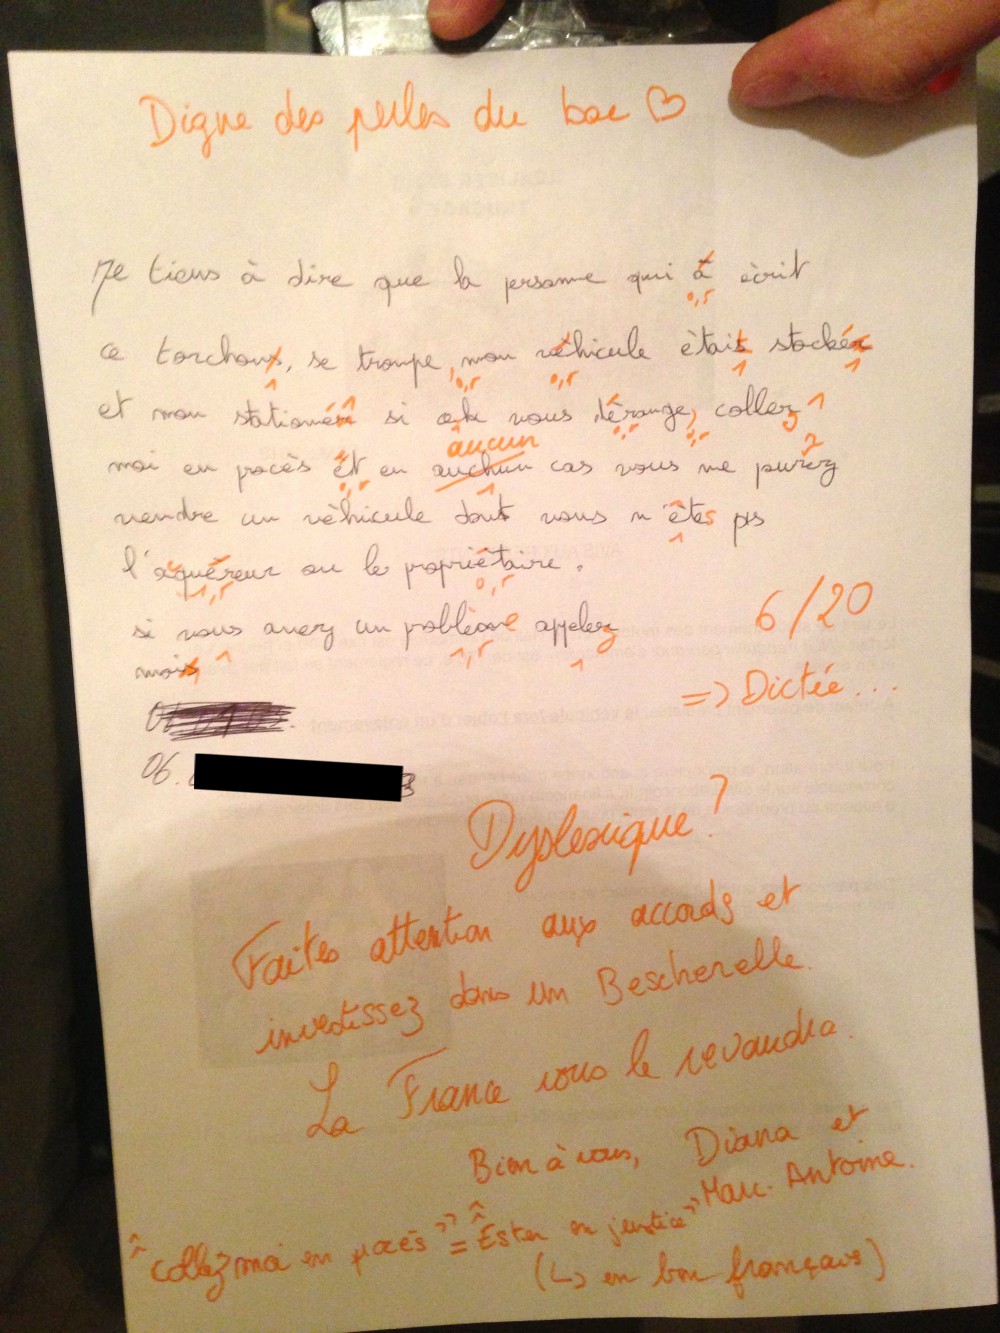 Digne des perles du bac ♡
Je tiens à dire que la personne qui à ècrit
0,5
ce torchons, se trompe, mon vèhicule ètais stockér
1 0,5 0,5 1 1
et mon stationér si cela vous dérange, collez
0,5 0,5
aucun
moi en procès èt en auchun cas vous me purez
0,5 1
vendre un vèhicule dont vous n'êtes pas
1
l'aquéreur ou le propriétaire.
1,5 0,5
si vous avez un poblème appelez
1,5 1
mois
6/20
=> Dictée...
06.
Dyslexique ?
Faites attention aux accords et
investissez dans un Bescherelle.
La France vous le revaudra.
Bien à vous, Diana et
Marc-Antoine.
"Collez moi en procès" = "Ester en justice"
(↳ en bon français)